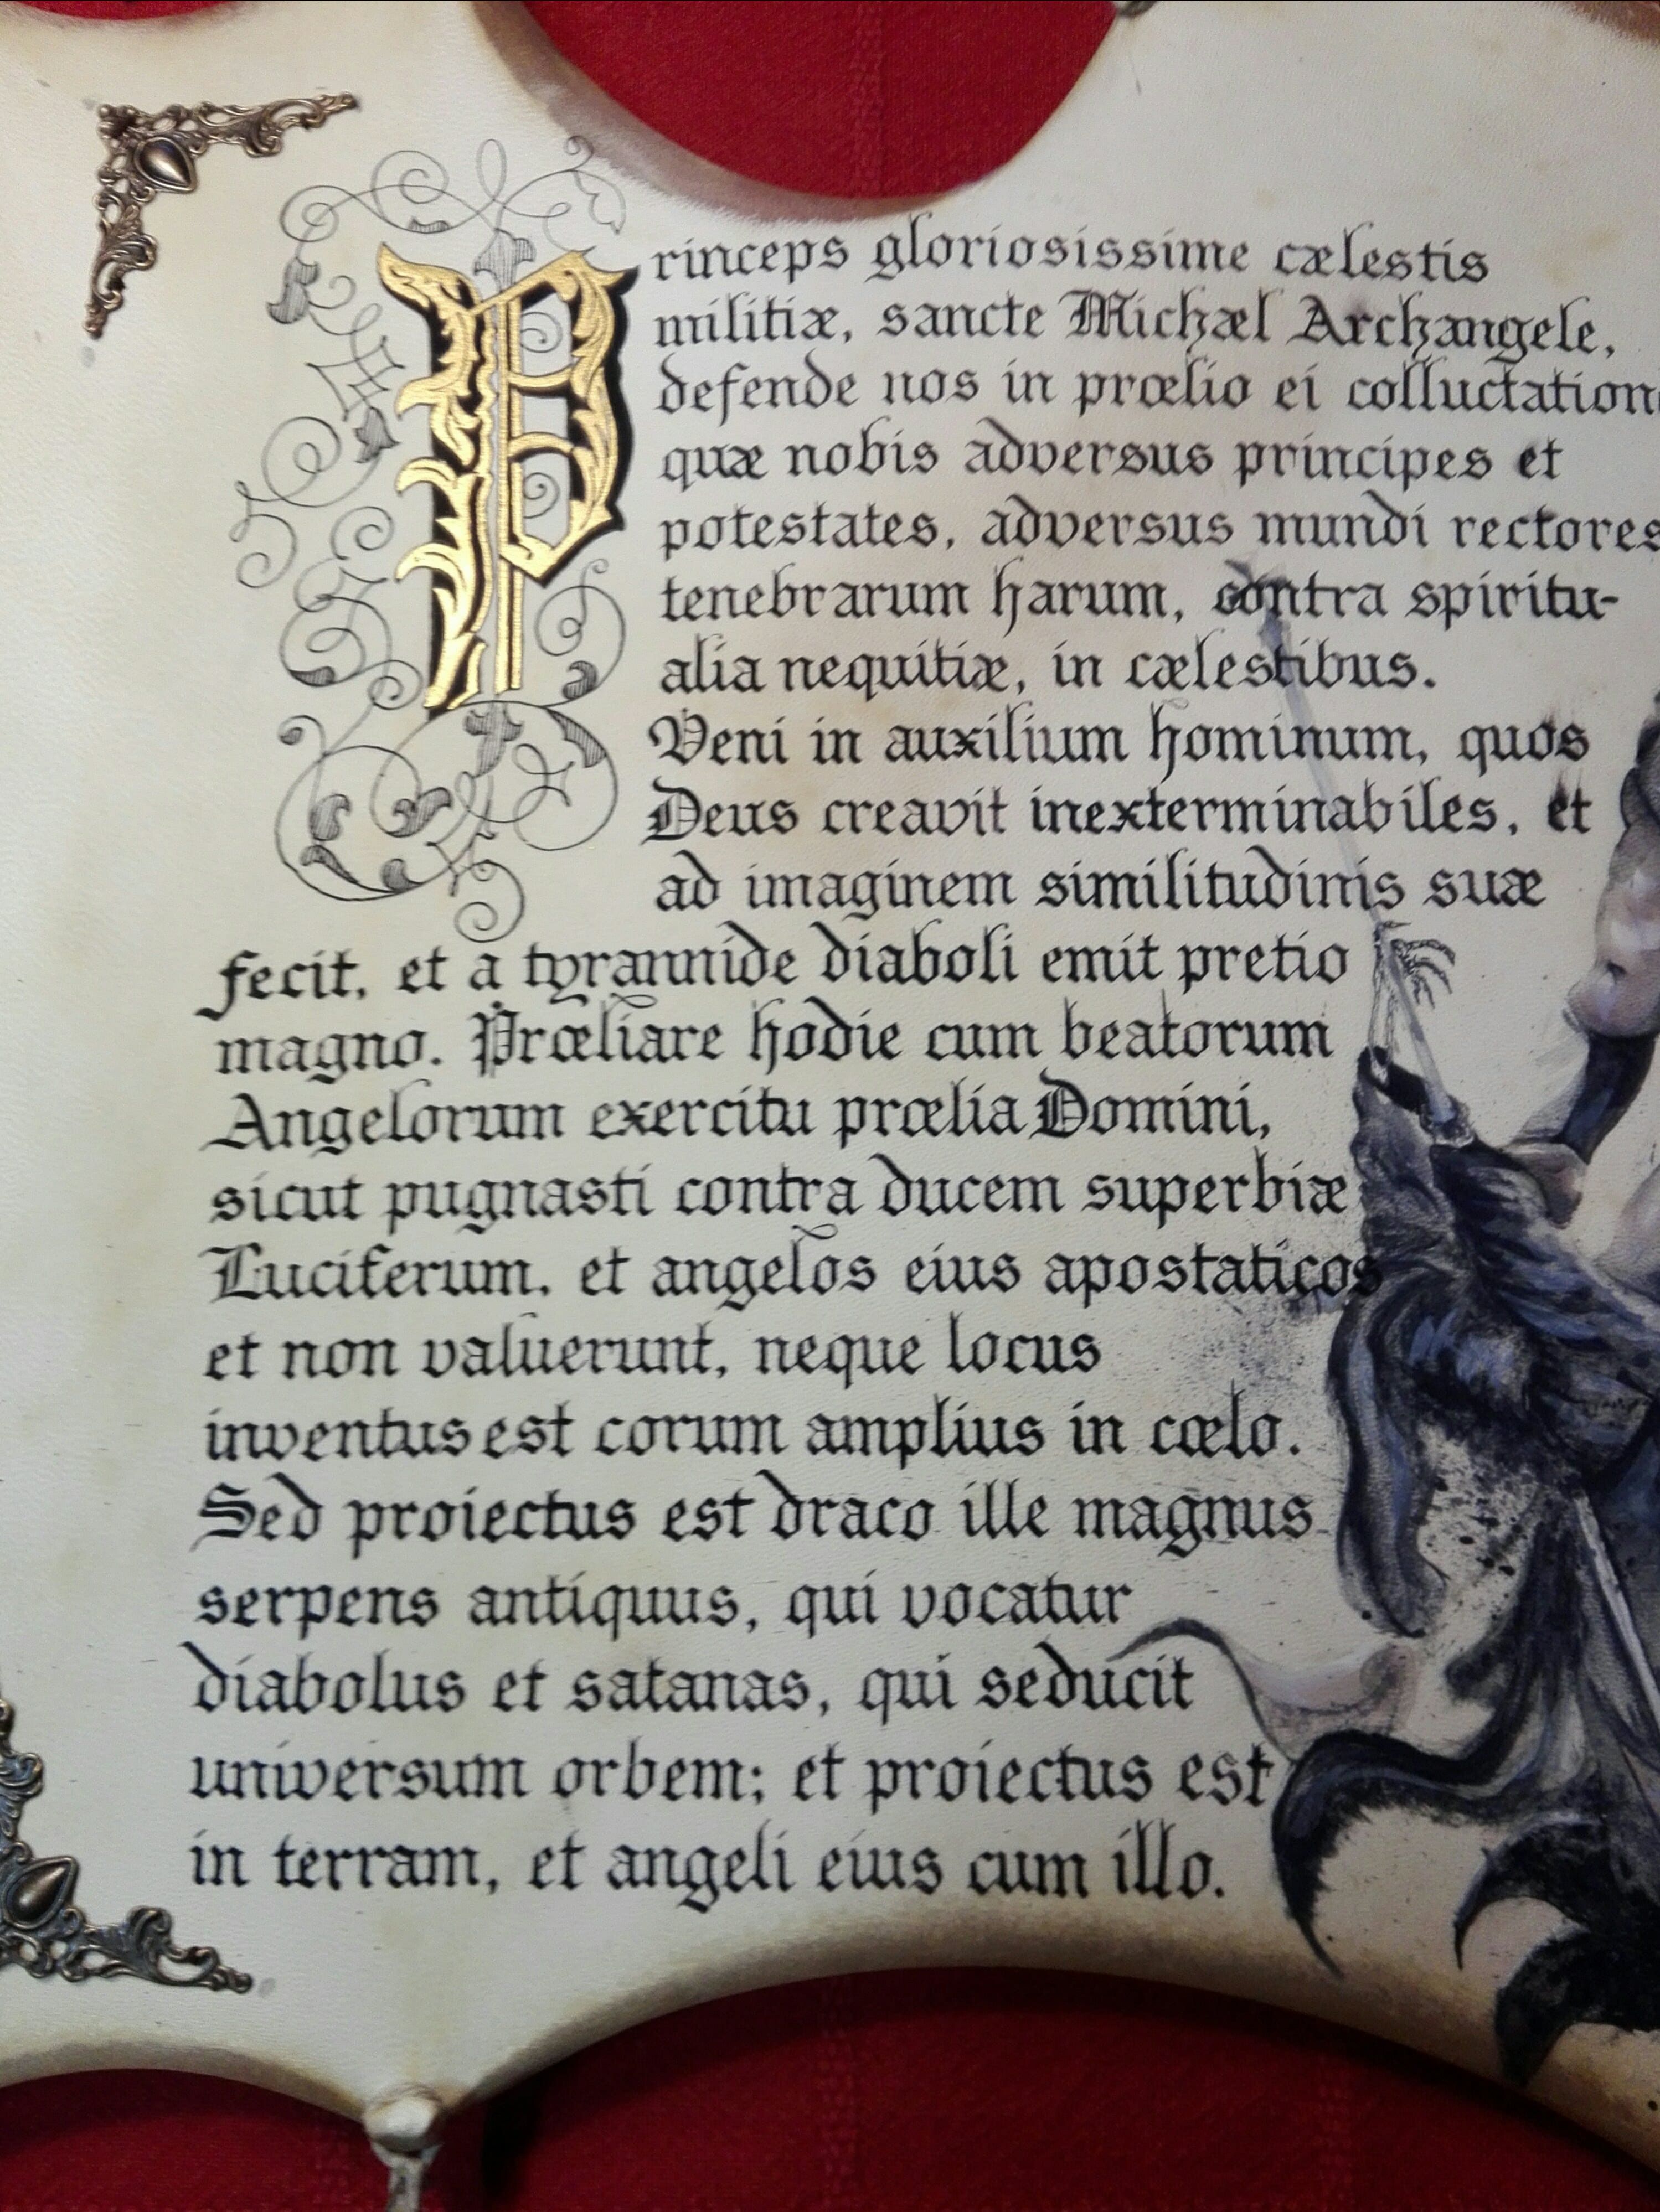 Princeps gloriosissime cælestis
militiæ, sancte Michæl Archangele,
defende nos in prœlio ei colluctation
quæ nobis adversus principes et
potestates, adversus mundi rectores
tenebrarum harum, contra spiritu-
alia nequitiæ, in cælestibus.
Veni in auxilium hominum, quos
Deus creavit inexterminabiles, et
ad imaginem similitudinis suæ
fecit, et a tyrannide diaboli emit pretio
magno. Prœliare hodie cum beatorum
Angelorum exercitu prœlia Domini,
sicut pugnasti contra ducem superbiæ
Luciferum, et angelos eius apostaticos
et non valuerunt, neque locus
inventus est corum amplius in cœlo.
Sed proiectus est draco ille magnus
serpens antiquus, qui vocatur
diabolus et satanas, qui seducit
universum orbem; et proiectus est
in terram, et angeli eius cum illo.